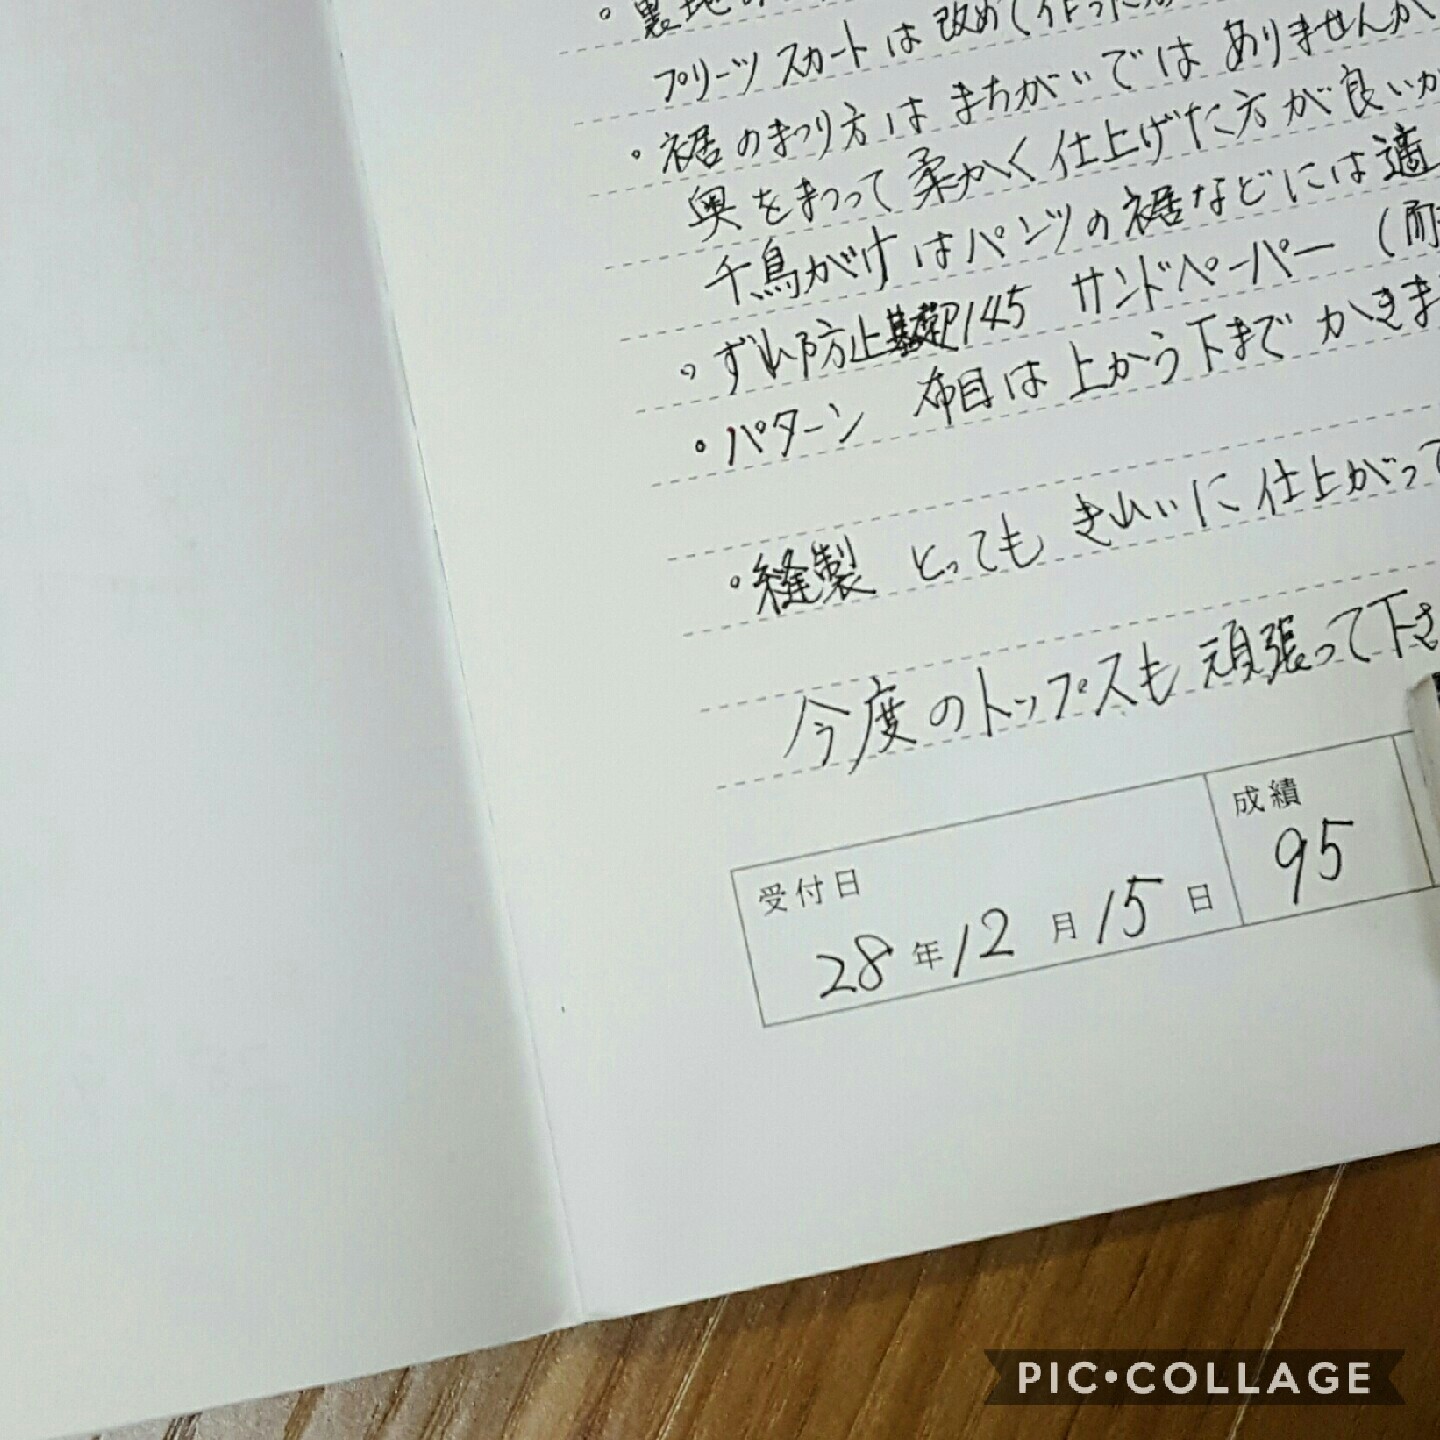 ・裏地
プリーツスカートは改めて作った
・裾のまつり方はまちがいではありませんが
奥をまつって柔かく仕上げた方が良いか
千鳥がけはパンツの裾などには適
・ずれ防止 P145 サンドペーパー(耐
・パターン 布目は上から下までかきま
・縫製 とってもきれいに仕上がって
今度のトップスも頑張って下さ
受付日 28年12月15日
成績 95
PIC•COLLAGE